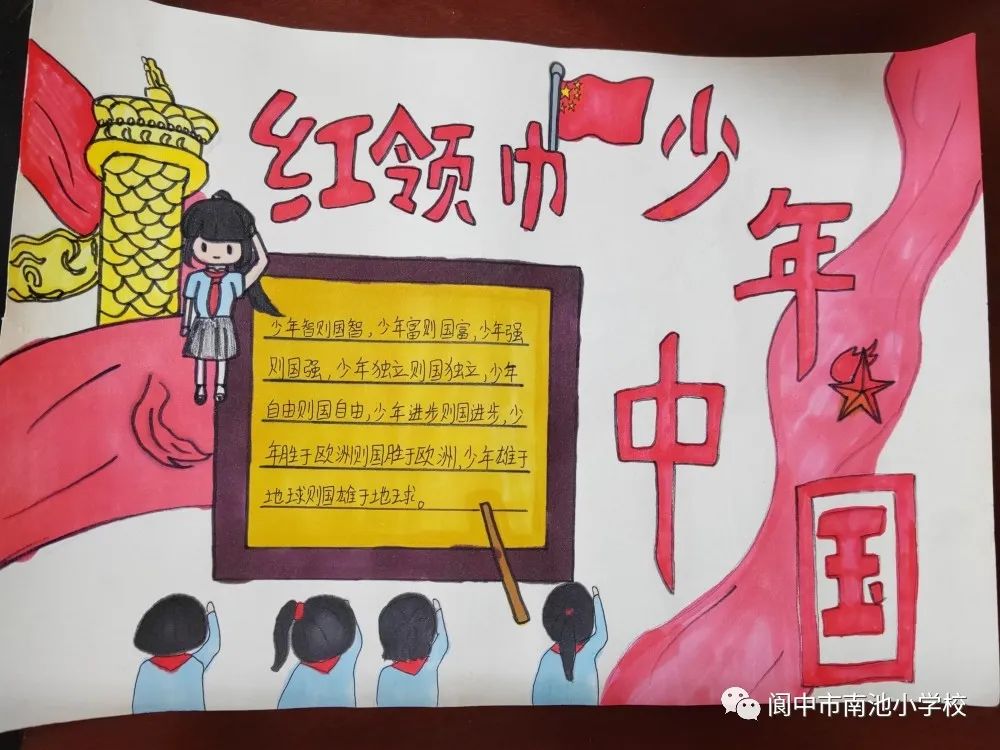 红领巾少年
中
国
少年智则国智，少年富则国富，少年强
则国强，少年独立则国独立，少年
自由则国自由，少年进步则国进步，少
年胜于欧洲则国胜于欧洲，少年雄于
地球则国雄于地球。
阆中市南池小学校